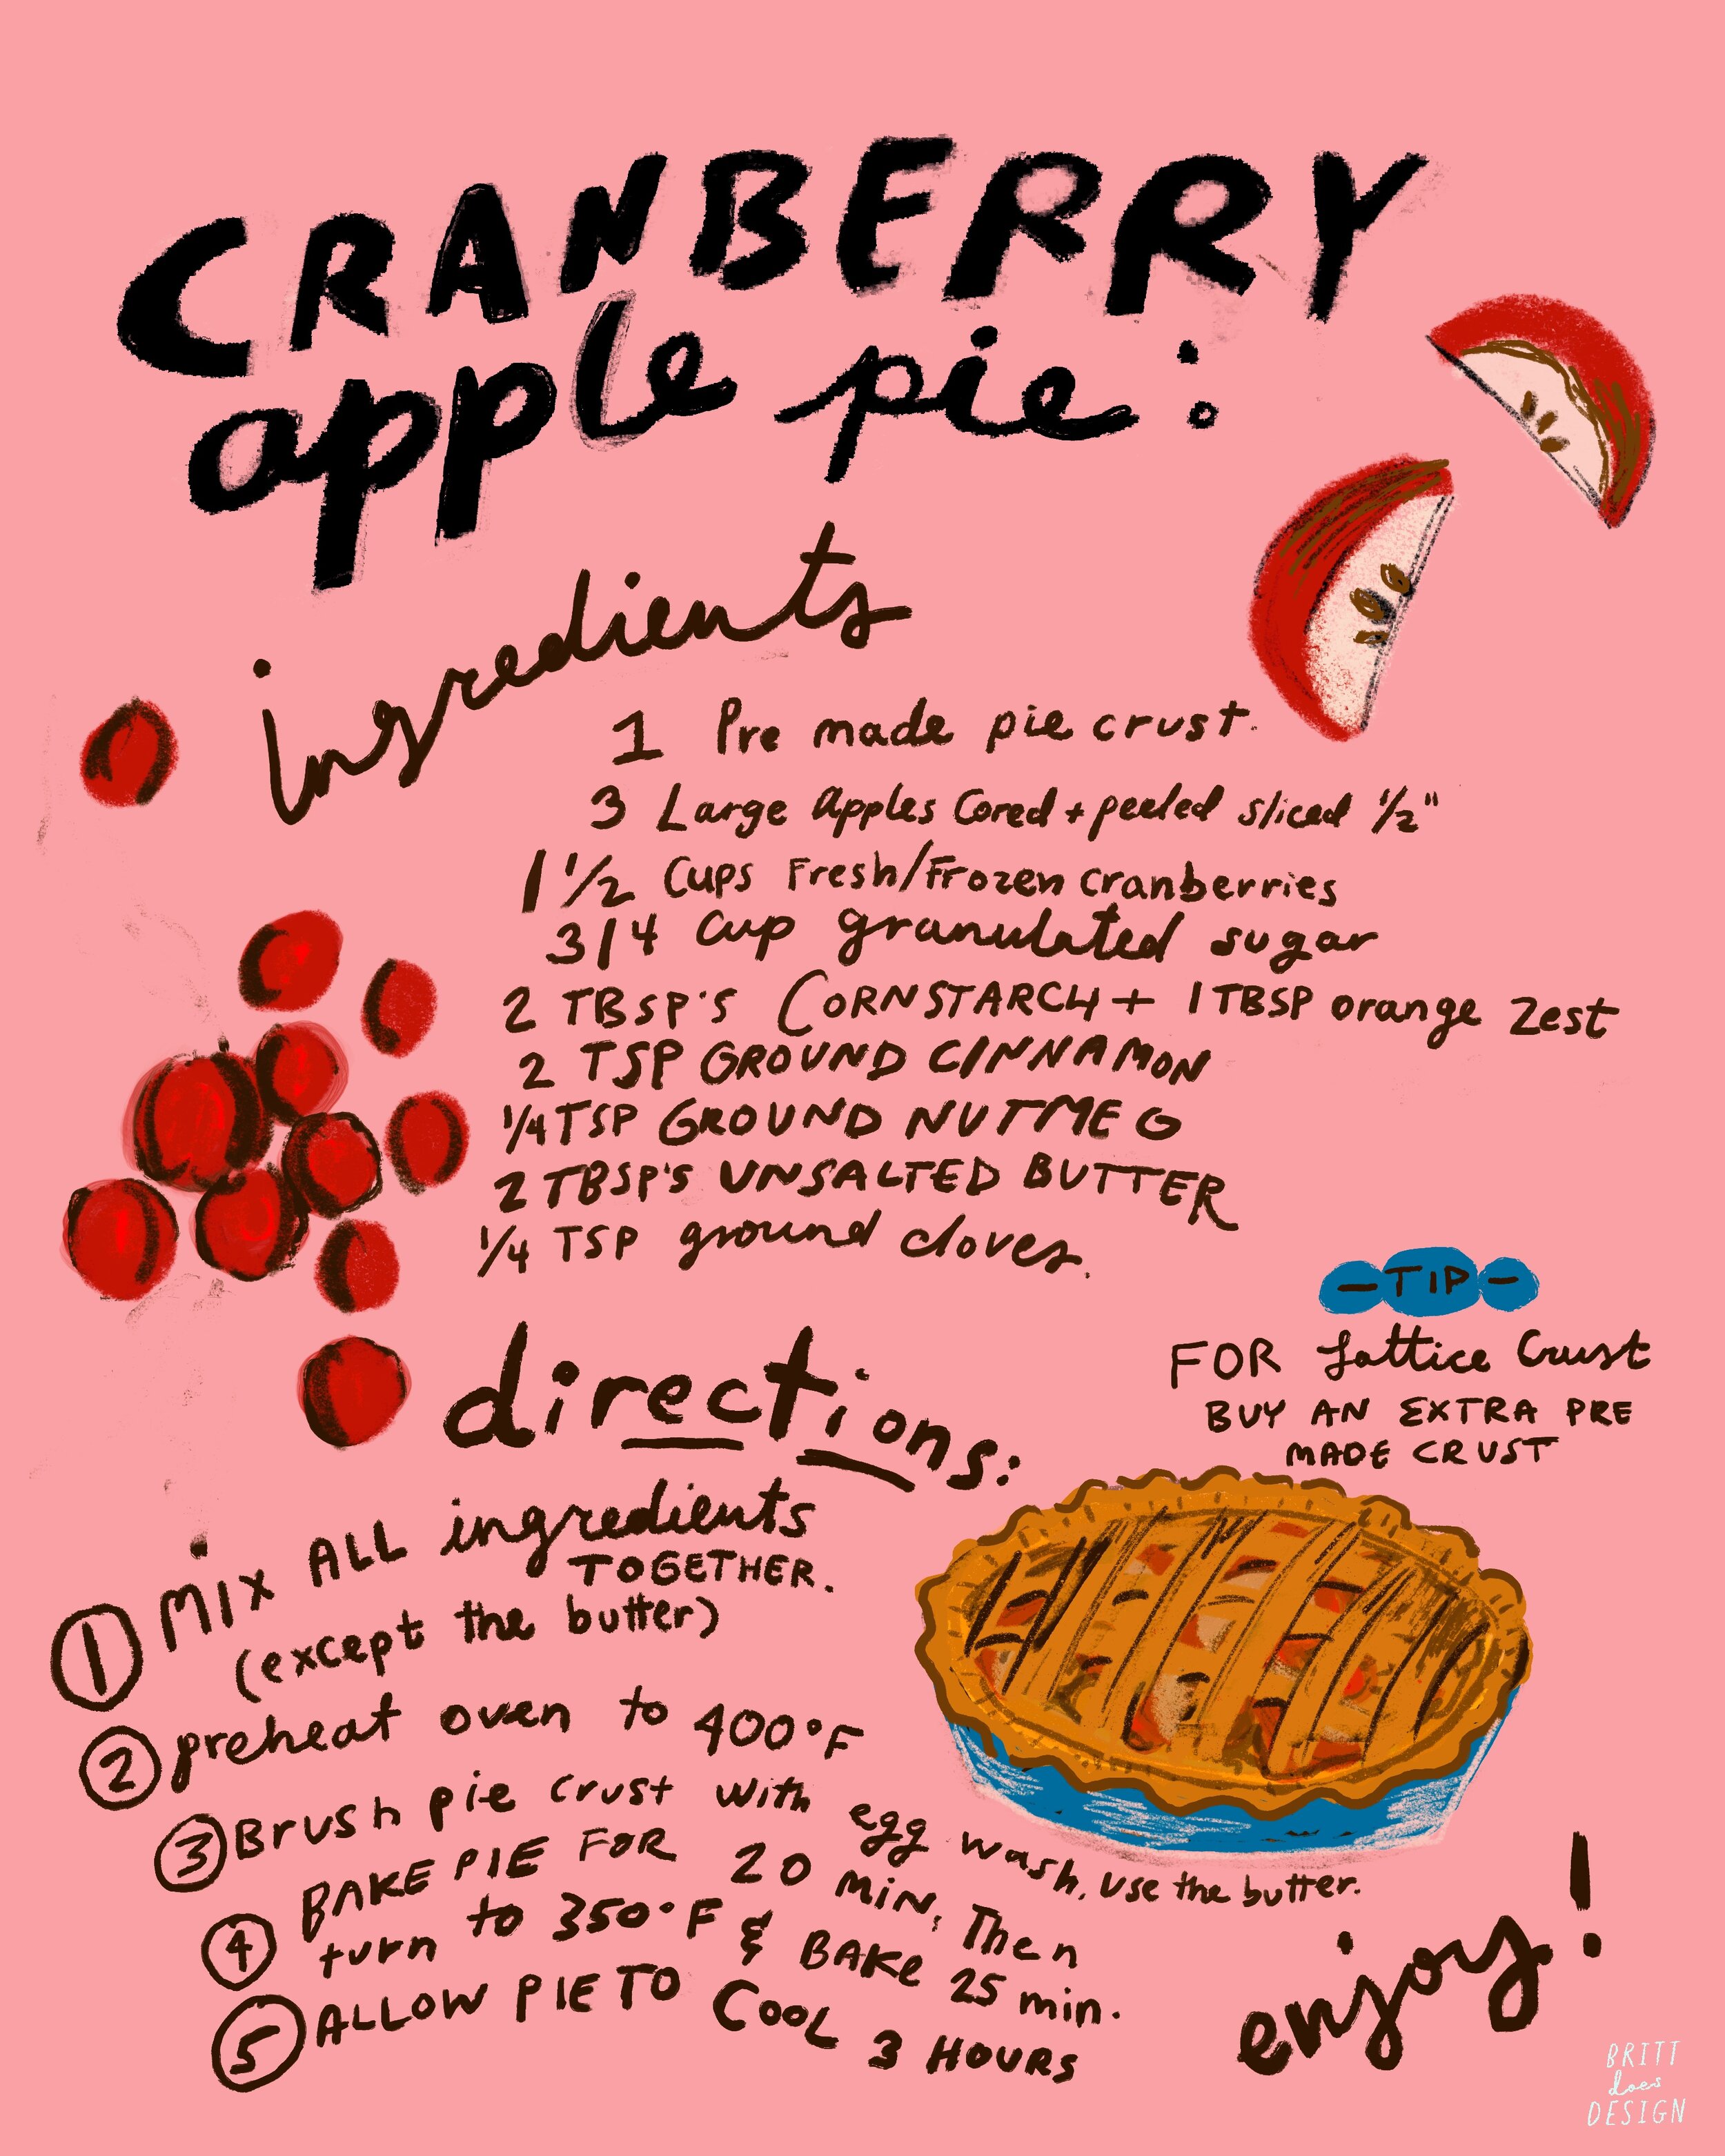 CRANBERRY
apple pie:
ingredients
1 Pre made pie crust.
3 Large Apples Cored + peeled sliced 1/2"
1 1/2 Cups Fresh/Frozen cranberries
3/4 Cup granulated sugar
2 TBSP'S CORNSTARCH + 1 TBSP orange Zest
2 TSP GROUND CINNAMON
1/4 TSP GROUND NUTMEG
2 TBSP'S UNSALTED BUTTER
1/4 TSP ground cloves.
-TIP-
FOR Lattice Crust
BUY AN EXTRA PRE
MADE CRUST
directions:
1 MIX ALL ingredients
TOGETHER.
(except the butter)
2 preheat oven to 400°F
3 Brush pie crust with egg wash, use the butter.
4 BAKE PIE FOR 20 MIN, Then
turn to 350°F & BAKE 25 min.
5 ALLOW PIE TO COOL 3 HOURS
enjoy!
BRITT
does
DESIGN